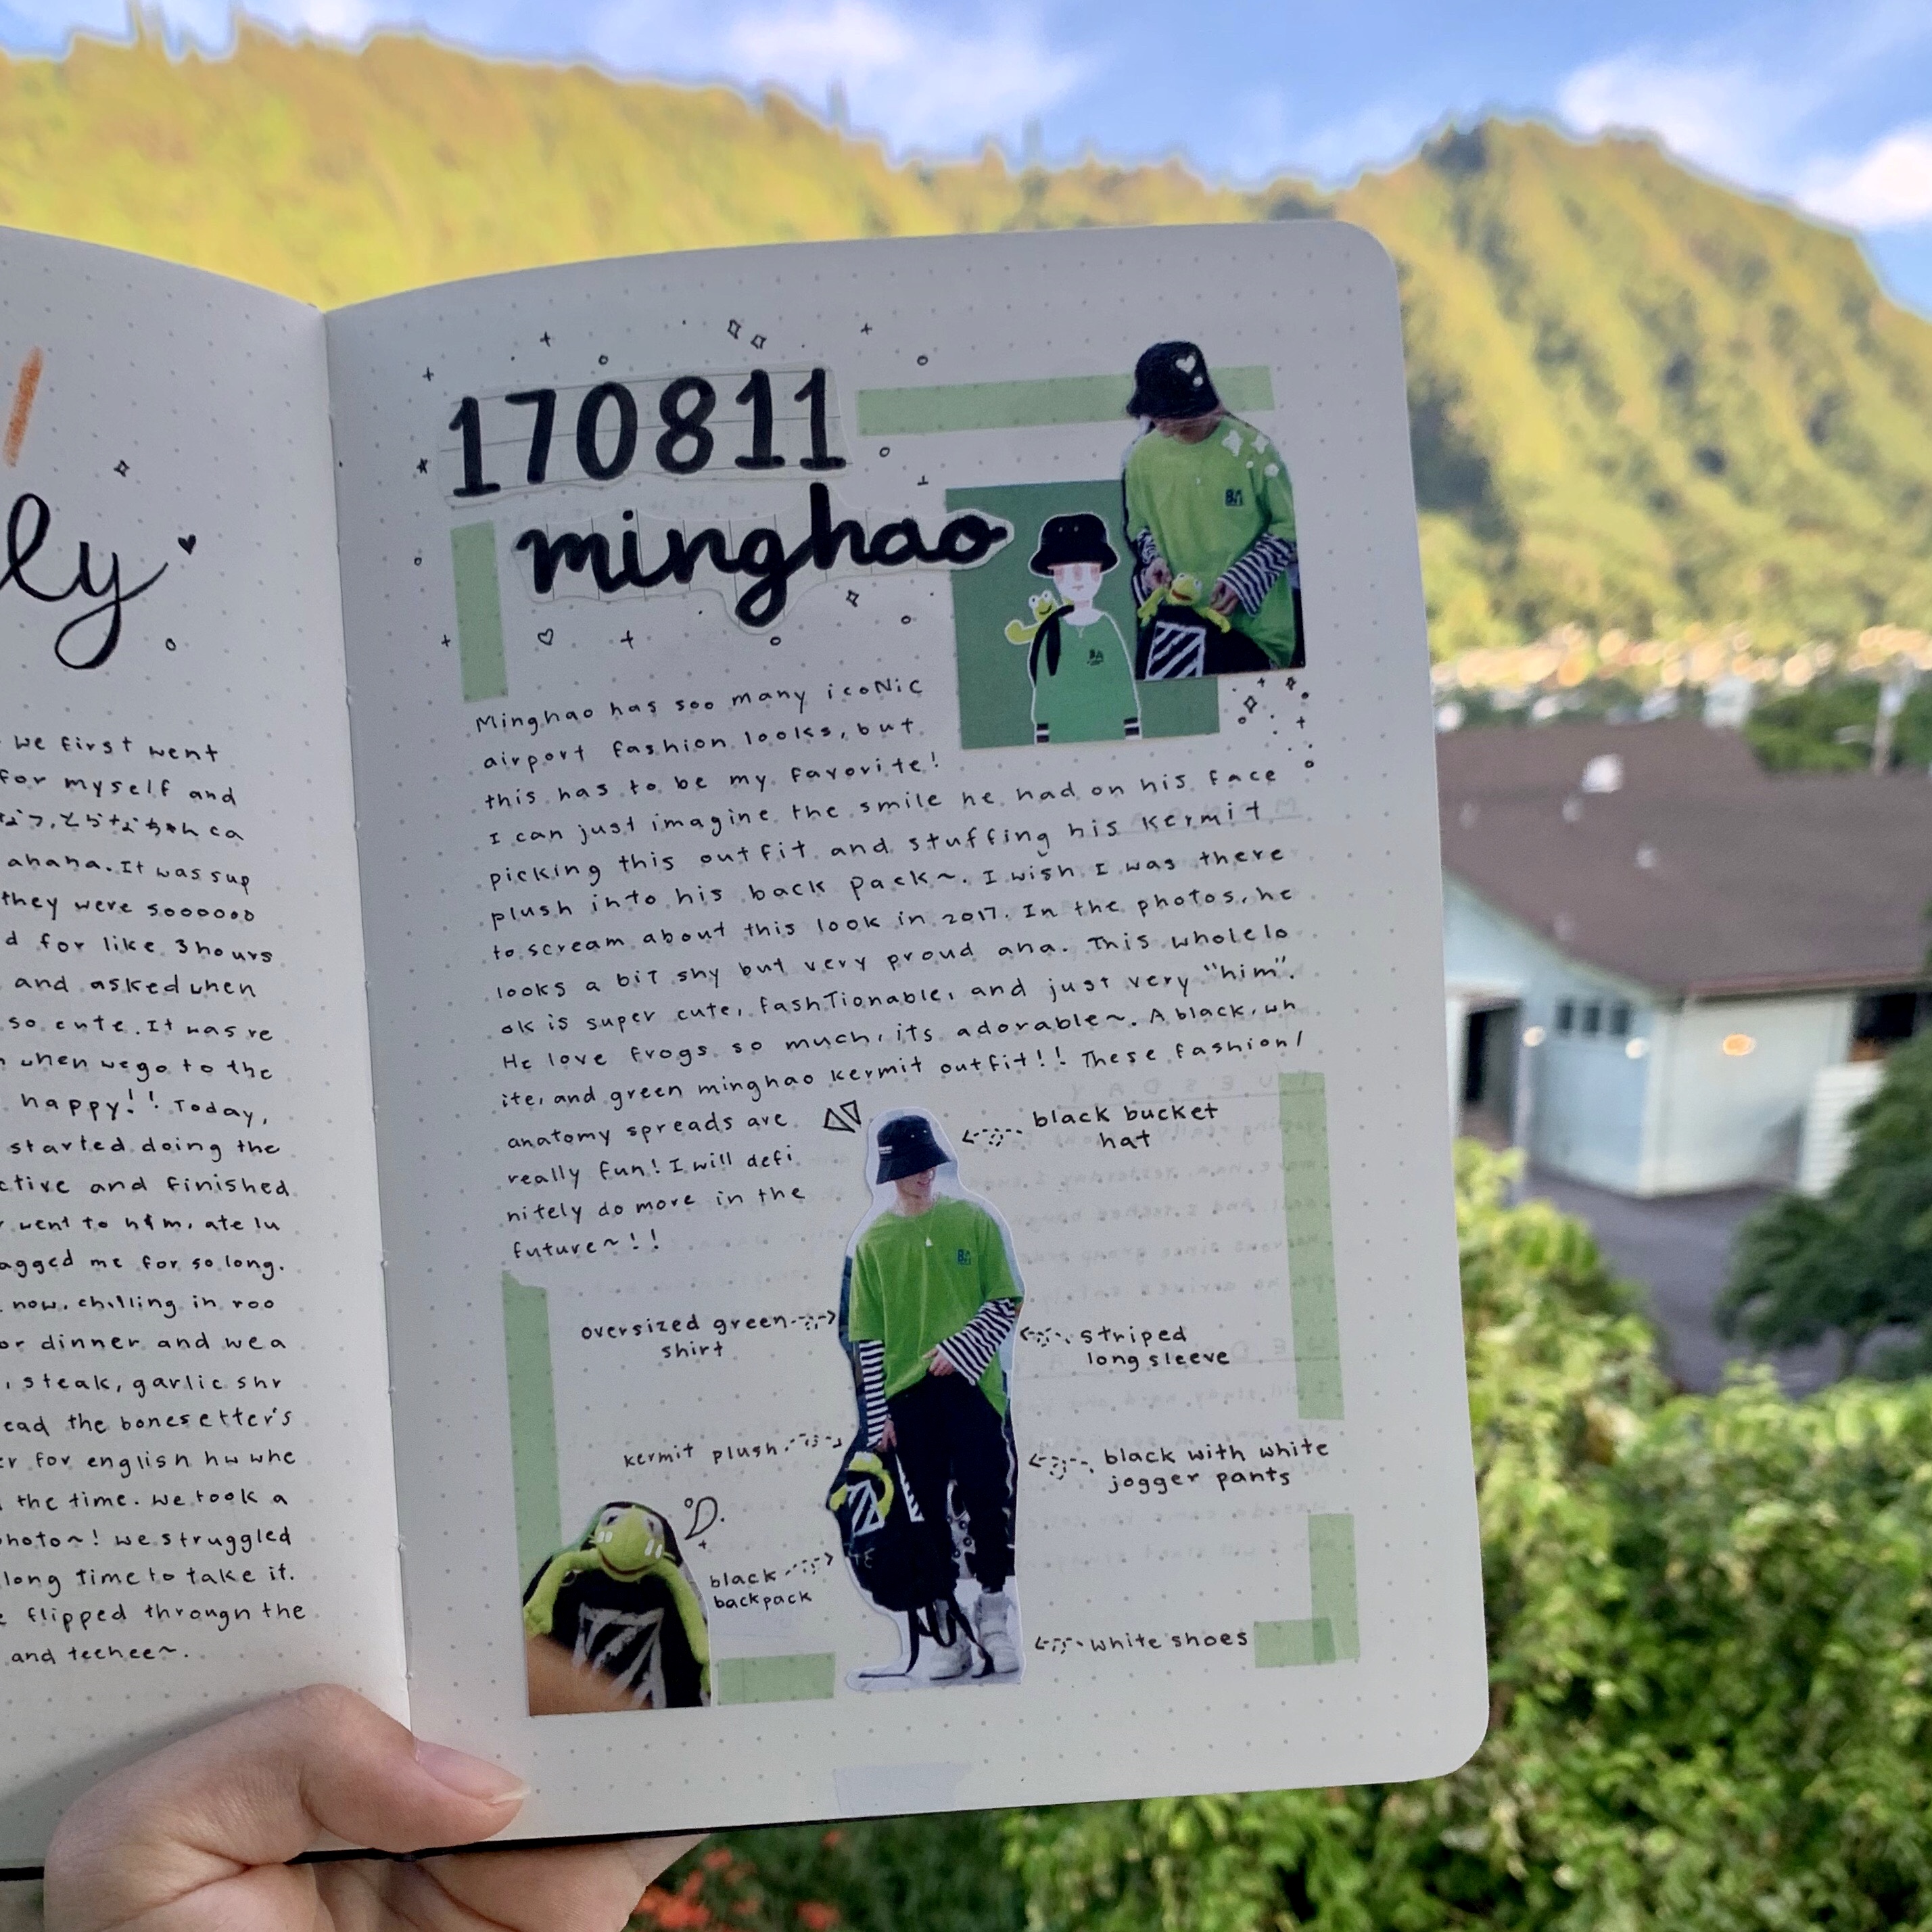 ly
we first went
for myself and
ca
ahaha. It was sup
they were soooooo
d for like 3 hours
and asked when
so cute. It was re
when we go to the
happy!! Today,
started doing the
ctive and finished
went to h&m, ate lu
agged me for so long.
now, chilling in roo
or dinner and we a
, steak, garlic shr
ead the bonesetter's
er for english hw whe
the time. We took a
hoto~! we struggled
long time to take it.
flipped through the
and teehee~.
170811
minghao
BA
BA
Minghao has soo many icoNic
airport fashion looks, but
this has to be my favorite!
I can just imagine the smile he had on his face
picking this outfit and stuffing his kermit
plush into his back pack~. I wish I was there
to scream about this look in 2017. In the photos, he
looks a bit shy but very proud aha. This whole lo
ok is super cute, fashTionable, and just very "him".
He love frogs so much, its adorable~. A black, wh
ite, and green minghao kermit outfit!! These fashion/
anatomy spreads are
really fun! I will defi
nitely do more in the
future~!!
black bucket
hat
BA
oversized green
shirt
striped
long sleeve
kermit plush
black with white
jogger pants
black
backpack
white shoes